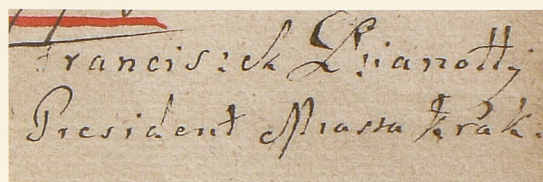 Franciszek Dzianotty
President Miasta Krak.